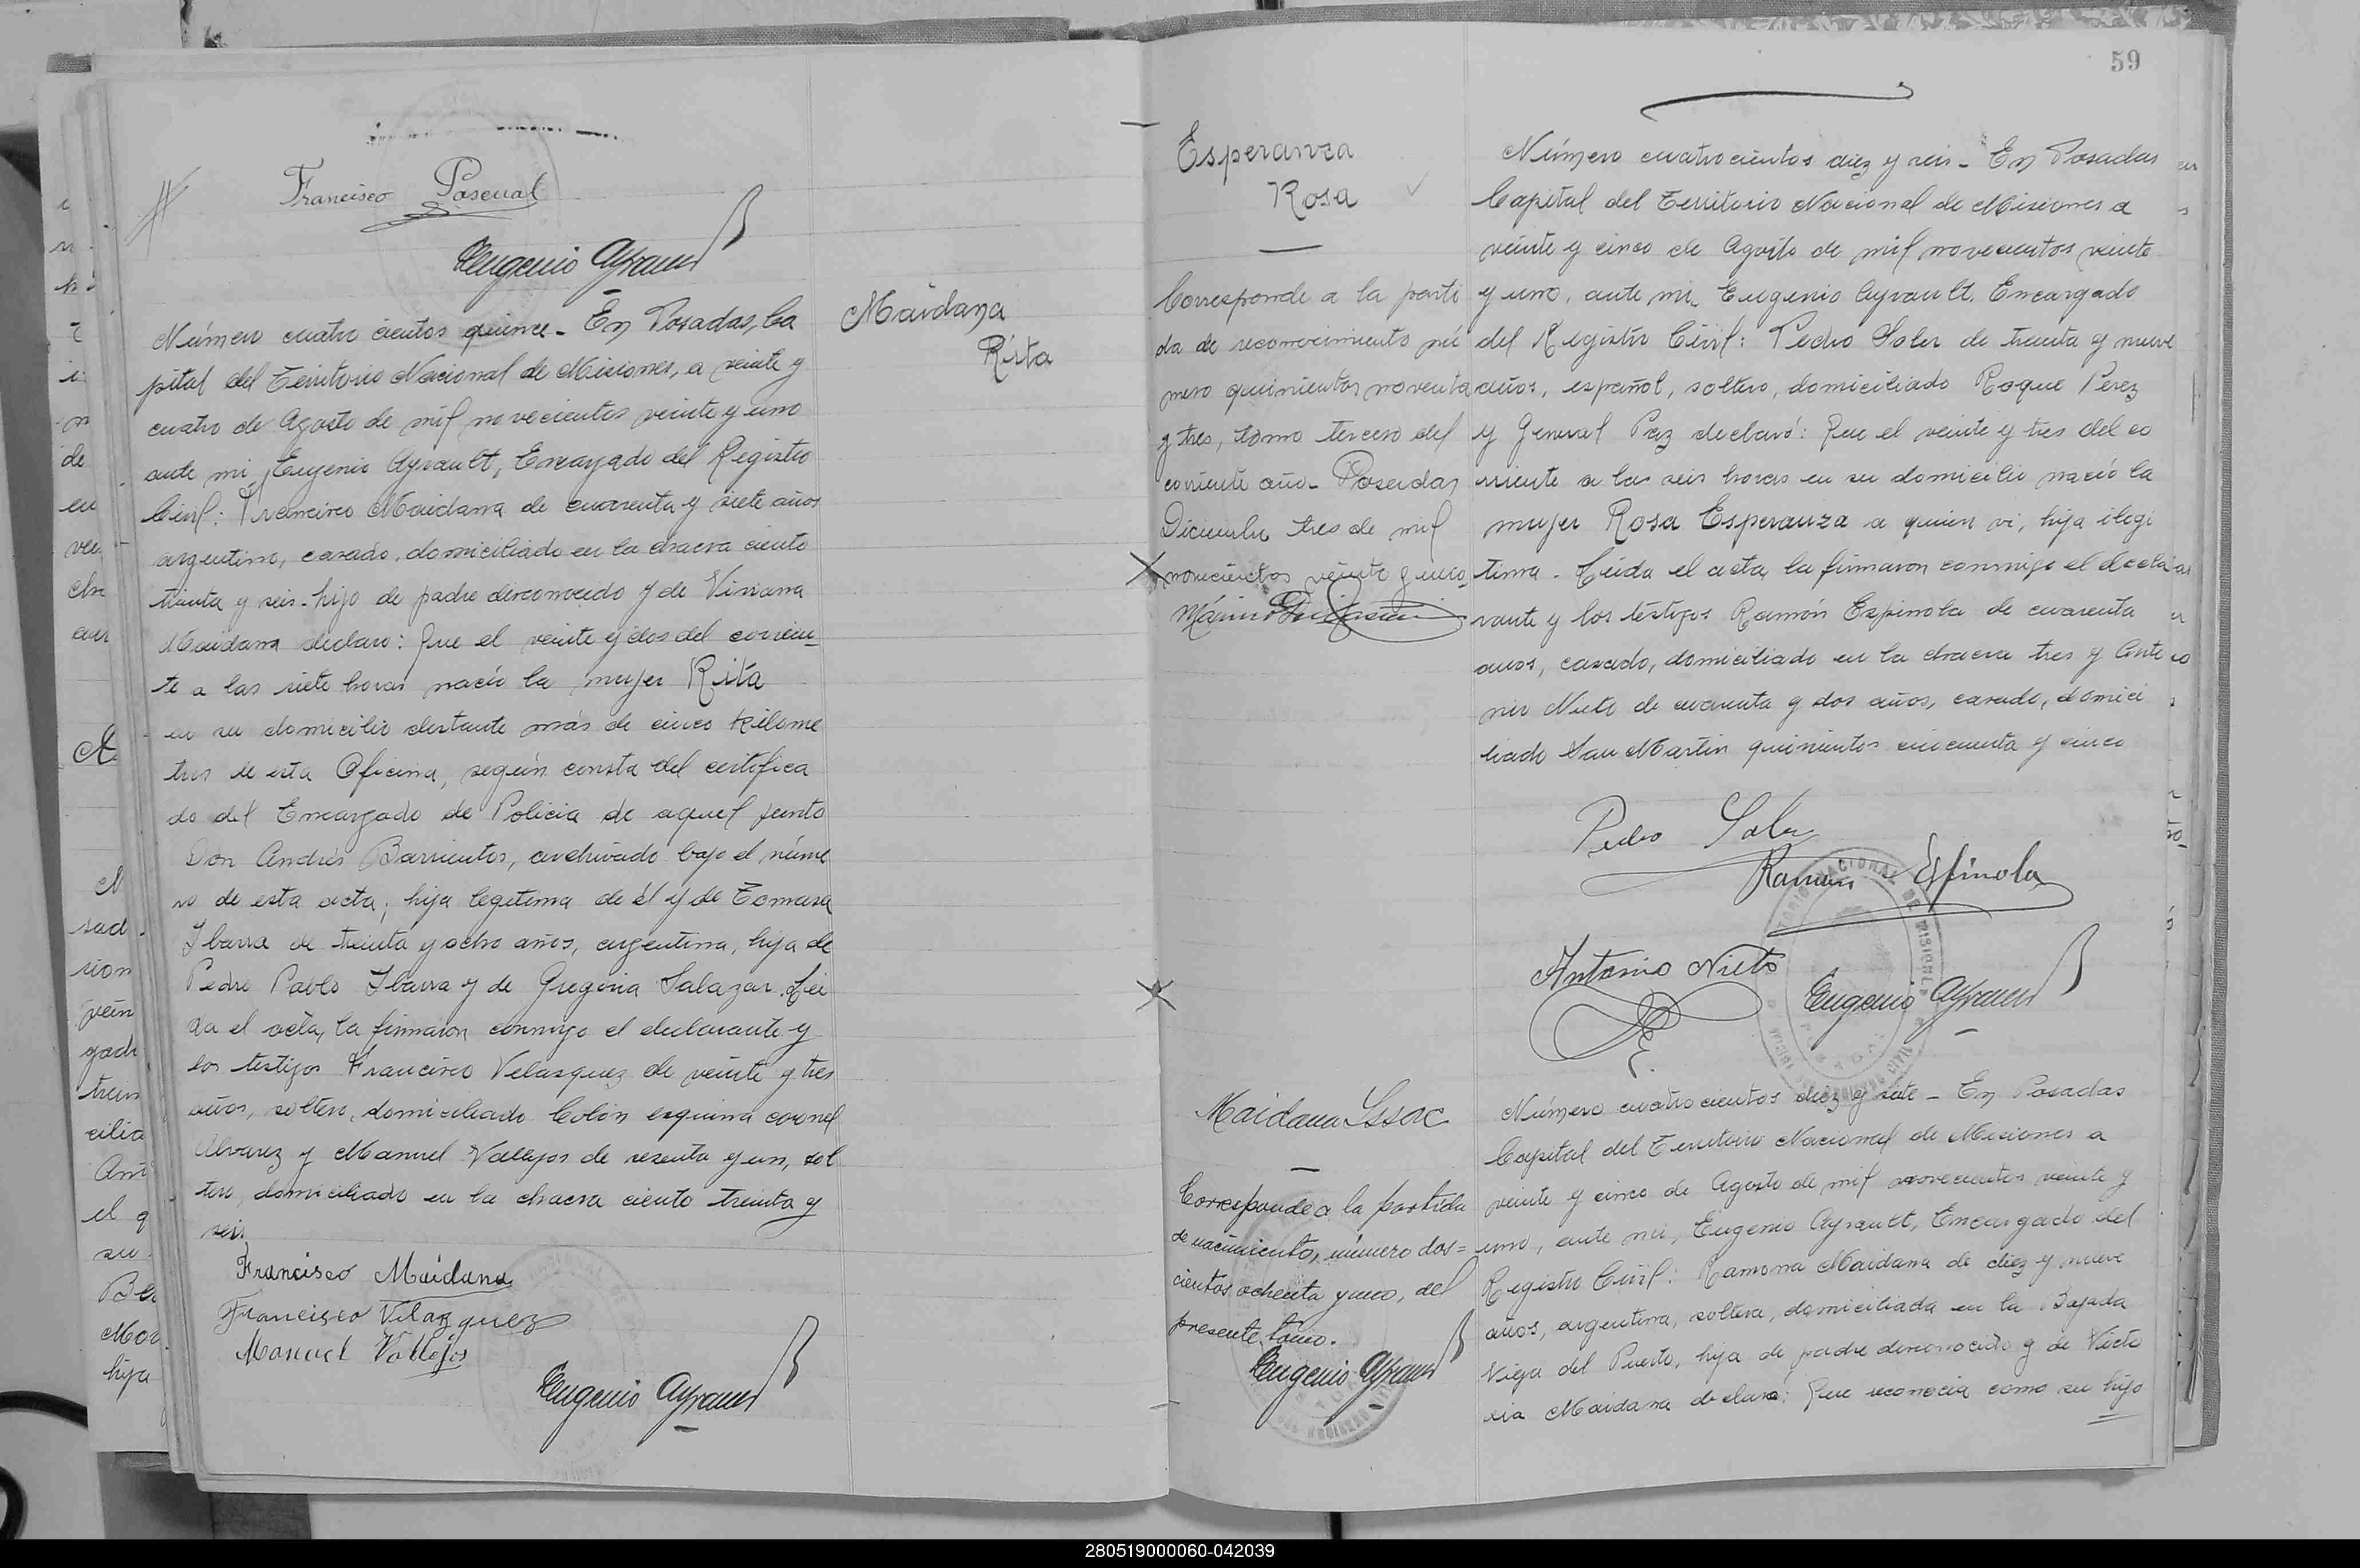 Francisco Pascual
Eugenio Ayrault
Maidana
Rita
Número cuatro cientos quince - En Posadas, Ca
pital del Territorio Nacional de Misiones, a veinte y
cuatro de Agosto de mil novecientos veinte y uno
ante mi, Eugenio Ayrault, Encargado del Registro
Civil: Francisco Maidana de cuarenta y siete años
argentino, casado, domiciliado en la chacra ciento
treinta y seis - hijo de padre desconocido y de Viviana
Maidana declaro: Que el veinte y dos del corrien-
te a las siete horas nació la mujer Rita
en su domicilio distante más de cinco kilome
tros de esta Oficina, según consta del certifica
do del Encargado de Policia de aquel punto
Don Andrés Barrientos, archivado bajo el núme
ro de esta acta; hija legitima de él y de Tomasa
Ibarra de treinta y ocho años, argentina, hija de
Pedro Pablo Ibarra y de Gregoria Salazar. Lei
da el acta, la firmaron conmigo el declarante y
los testigos Francisco Velasquez de veinte y tres
años, soltero, domiciliado Colón esquina coronel
Alvarez y Manuel Vallejos de sesenta y un, sol
tero, domiciliado en la chacra ciento treinta y
seis
Francisco Maidana
Francisco Velazquez
Manuel Vallejos
Eugenio Ayrault
59
Esperanza
Rosa
Corresponde a la parti
da de reconocimiento nú
mero quinientos noventa
y tres, tomo tercero del
corriente año - Posadas
Diciembre tres de mil
novecientos veinte y cinco
Número cuatrocientos diez y seis - En Posadas
Capital del Territorio Nacional de Misiones a
veinte y cinco de Agosto de mil novecientos veinte
y uno, ante mi, Eugenio Ayrault, Encargado
del Registro Civil: Pedro Soler de treinta y nueve
años, español, soltero, domiciliado Roque Perez
y General Paz declaró: Que el veinte y tres del co
rriente a las seis horas en su domicilio nació la
mujer Rosa Esperanza a quien vi, hija ilegi
tima. Leida el acta, la firmaron conmigo el decla
rante y los testigos Ramón Espinola de cuarenta
años, casado, domiciliado en la chacra tres y Anto
nio Nieto de cuarenta y dos años, casado, domici
liado San Martin quinientos cincuenta y cinco
Pedro Soler
Ramón Espínola
Antonio Nieto
Eugenio Ayrault
Maidana Issac
Corresponde a la partida
de nacimiento, número dos=
cientos ochenta y uno, del
presente tomo.
Eugenio Ayrault
Número cuatrocientos diez y siete - En Posadas
Capital del Territorio Nacional de Misiones a
veinte y cinco de Agosto de mil novecientos veinte y
uno, ante mi, Eugenio Ayrault, Encargado del
Registro Civil: Ramona Maidana de diez y nueve
años, argentina, soltera, domiciliada en la Bajada
Vieja del Puerto, hija de padre desconocido y de Victo
ria Maidana declaró: Que reconocia como su hijo
280519000060-042039